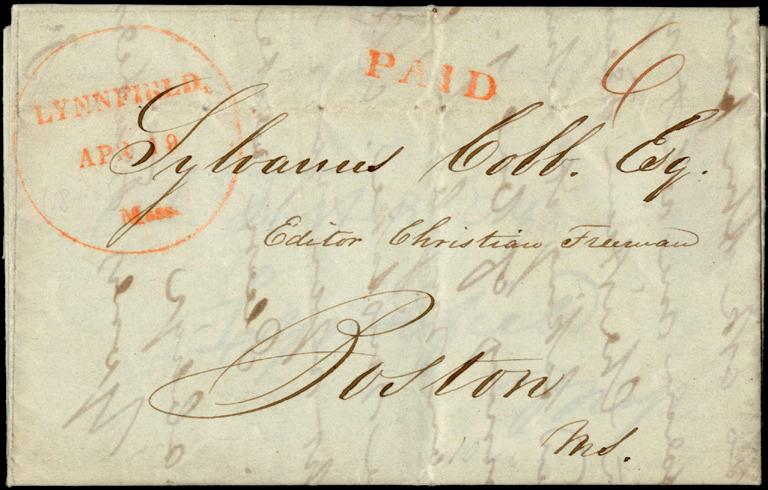 LYNNFIELD.
APR 19
Mass.
PAID
6
Sylvanus Cobb. Esq.
Editor Christian Freeman
Boston
Ms.